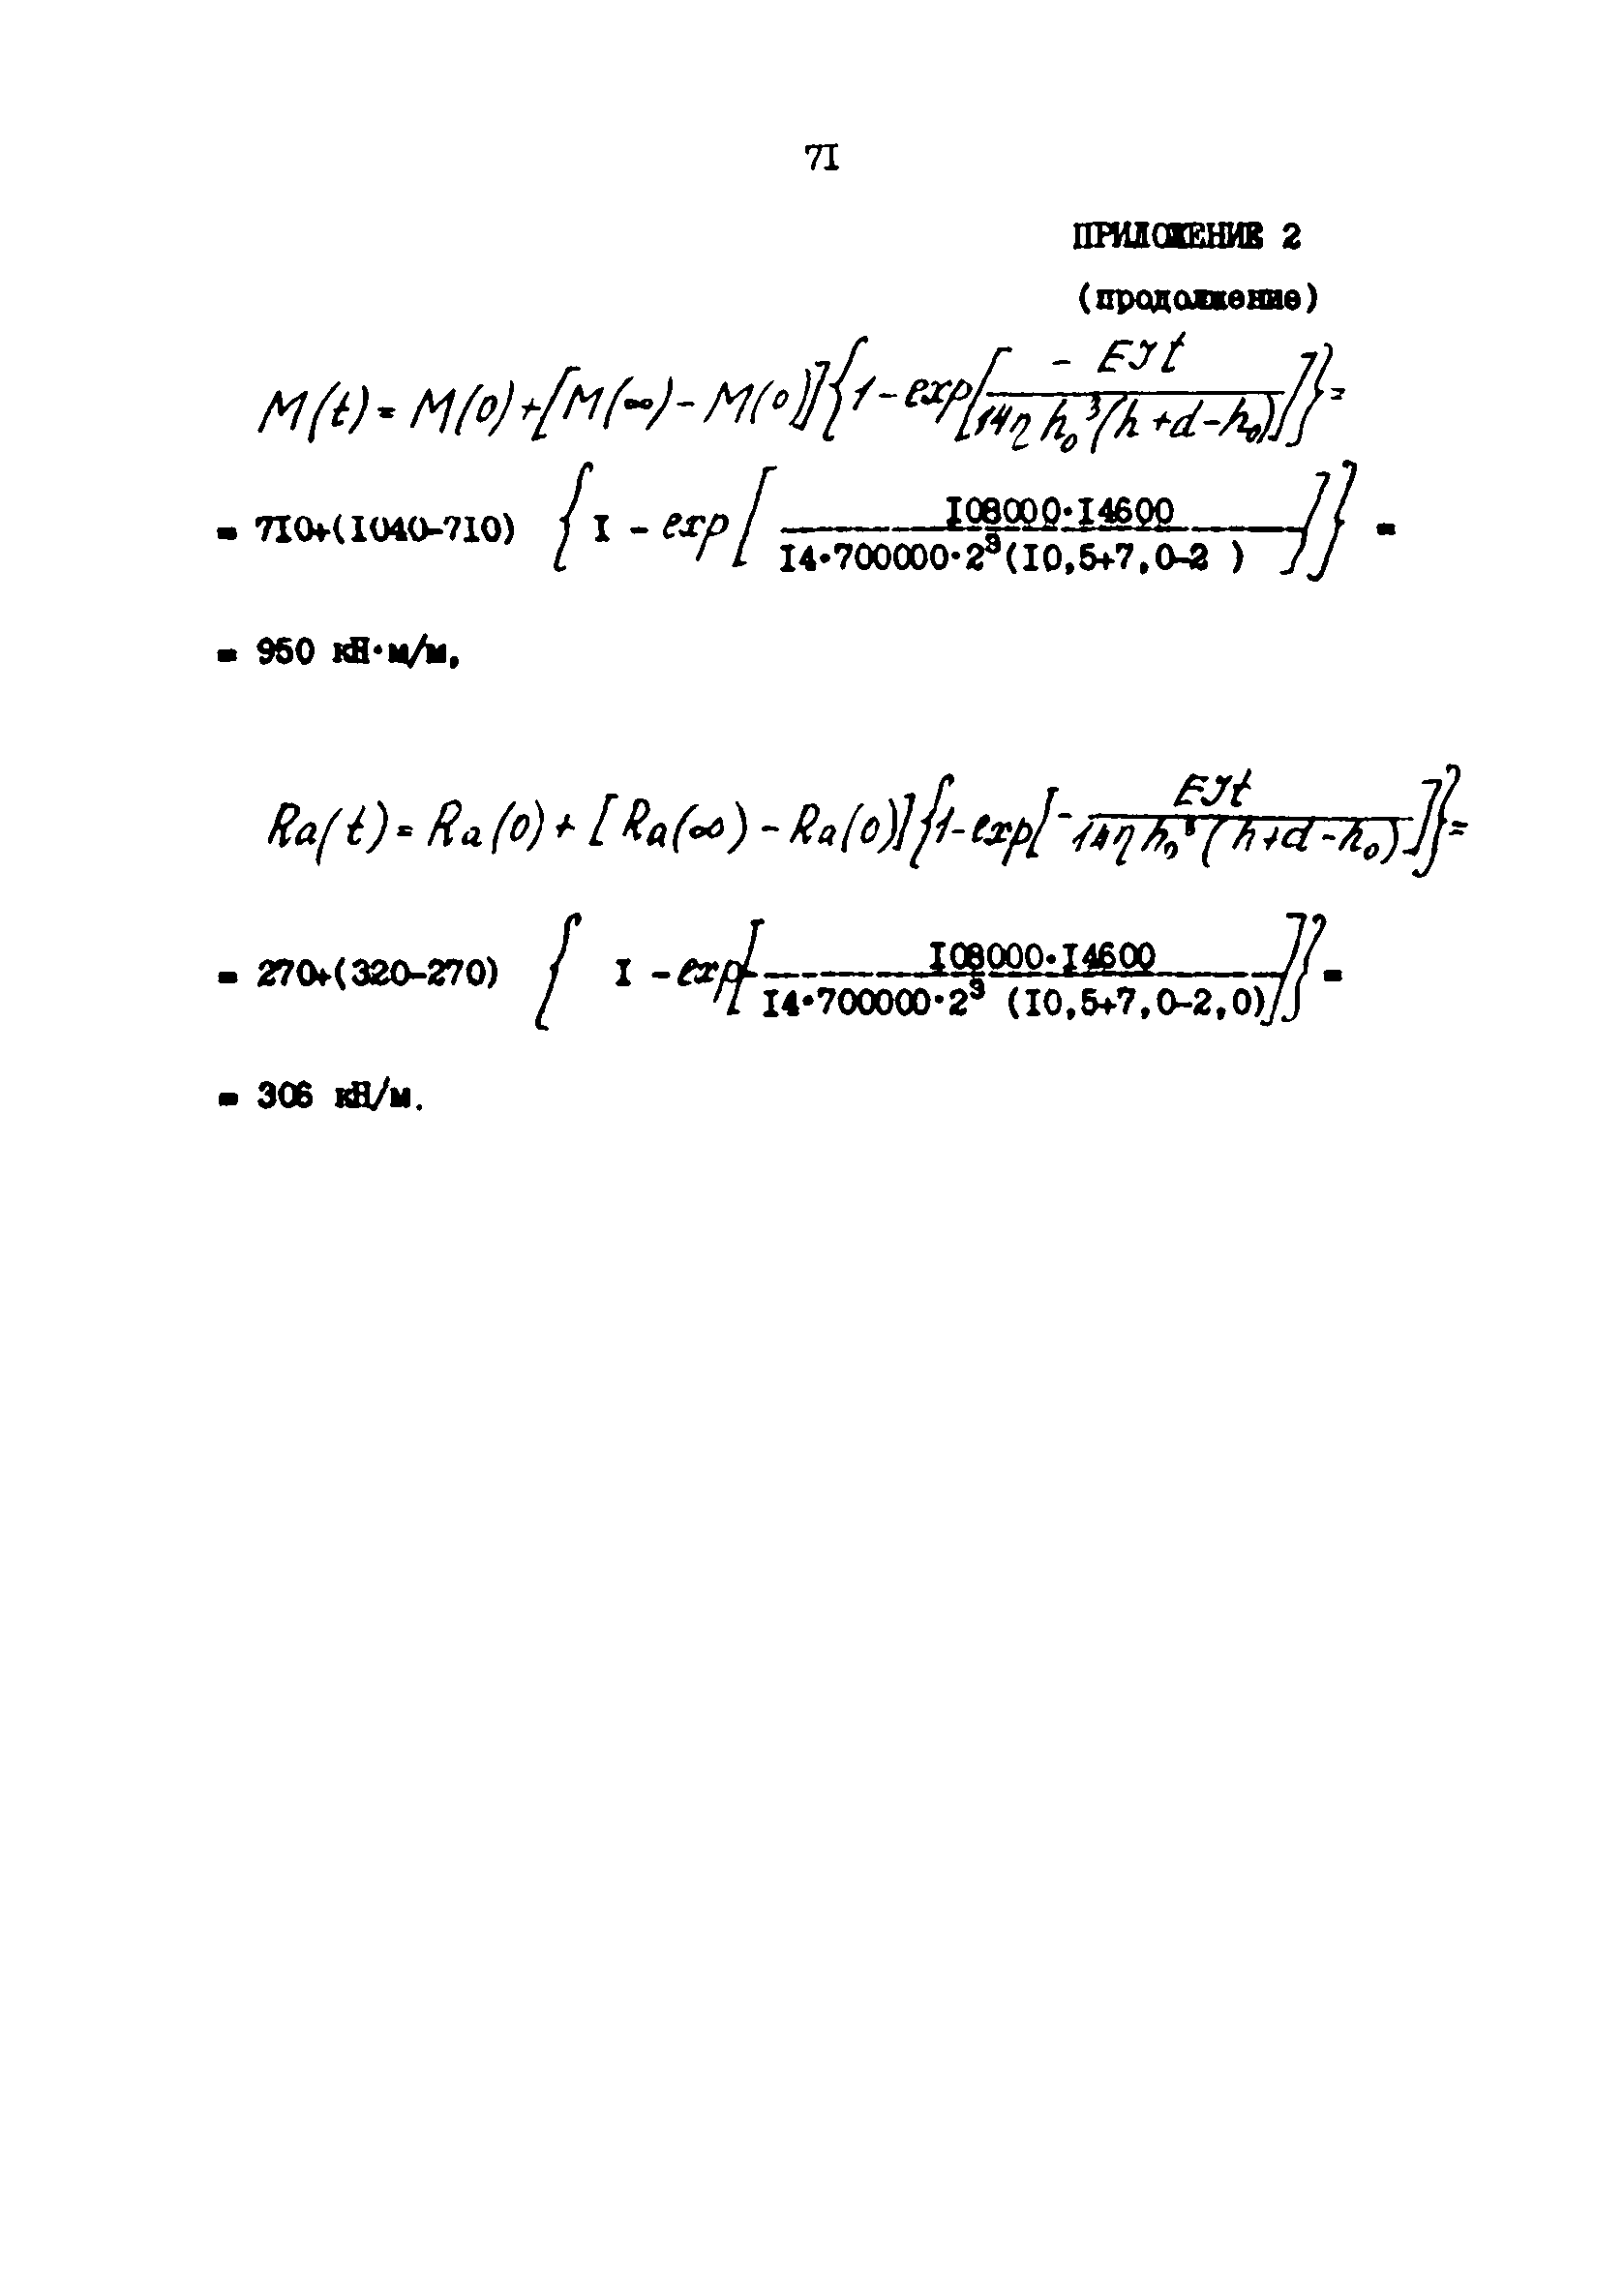 7I
ПРИЛОЖЕНИЕ 2
(продолжение)
M(t) = M(0) + [M(∞) - M(0)]{1 - exp[- EJt / 14η h₀³(h + d - h₀)]} =
= 7I0+(I040-7I0) {I - exp[I08000·I4600 / I4·700000·2³(I0,5+7,0-2 )]} =
= 950 кН·м/м,
Ra(t) = Ra(0) + [Ra(∞) - Ra(0)]{1 - exp[- EJt / 14η h₀³(h + d - h₀)]} =
= 270+(320-270) { I - exp[- I08000·I4600 / I4·700000·2³ (I0,5+7,0-2,0)]} =
= 306 кН/м.